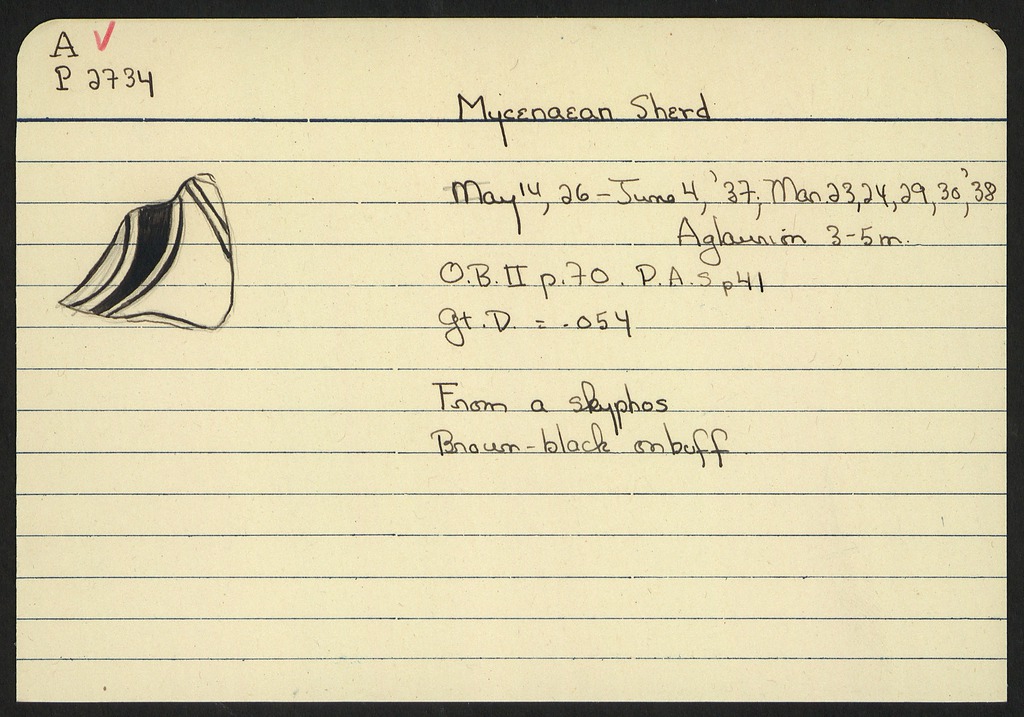 A ✓
P 2734
Mycenaean Sherd
May 14, 26 - June 4, '37; Mar. 23, 24, 29, 30, '38
Aglaurion 3-5 m.
O.B. II p. 70. P.A.S p 41
Gt. D. = .054
From a skyphos
Brown-black on buff